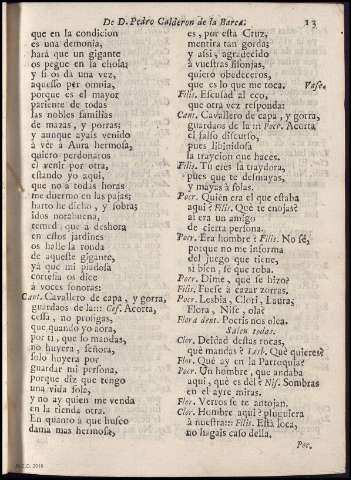 De D. Pedro Calderon de la Barca. 13
que en la condicion
es una demonia,
hará que un gigante
os pegue en la chola;
y si os dá una vez,
aquesso per omnia,
porque es el mayor
pariente de todas
las nobles familias
de mazas, y porras;
y aunque ayais venido
à vèr à Aura hermosa,
quiero perdonaros
el venir por otra,
estando yo aqui,
que no à todas horas
me duermo en las pajas;
harto he dicho, y sobra;
idos norabuena,
temed, que à deshora
en estos jardines
os halle la ronda
de aqueste gigante,
yà que mi piadosa
cortesia os dice
à voces sonoras:
Cant. Cavallero de capa, y gorra,
guardaos de la::: Cef. Acorta,
cessa, no prosigas,
que quando yo aora,
por ti, que so mandas,
no huyera, señora,
solo huyera por
guardar mi persona,
porque diz que tengo
una vida sola,
y no ay quien me venda
en la tienda otra.
En quanto à que busco
dama mas hermosa,
es, por esta Cruz,
mentira tan gorda;
y assi, agradecido
à vuestras lisonjas,
quiero obedeceros,
que es lo que me toca. Vase.
Filis. Escusad al eco,
que otra vez responda:
Cant. Cavallero de capa, y gorra,
guardaos de la ::: Pocr. Acorta
el falso discurso,
pues libidinosa
la traycion que haces.
Filis. Tù eres la traydora,
pues que te desmayas,
y mayas à solas.
Pocr. Quien era el que estaba
aqui? Filis. Què te enojas?
al era un amigo
de cierta persona.
Pocr. Era hombre? Filis. No sè,
porque no me informa
del juego que tiene,
si bien, sè que roba.
Pocr. Dime, què se hizo?
Filis. Fuese à cazar zorras.
Pocr. Lesbia, Clori, Laura,
Flora, Nise, ola?
Flora dent. Pocris nos olea.
Salen todas.
Clor. Deidad destas rocas,
què mandas? Lesb. Què quieres?
Flor. Què ay en la Parroquia?
Pocr. Un hombre, que andaba
aqui, què es dèl? Nis. Sombras
en el ayre miras.
Flor. Versos se te antojan.
Clor. Hombre aqui? pluguiera
à nuestra::: Filis. Està loca,
no hagais caso della,
Poc.